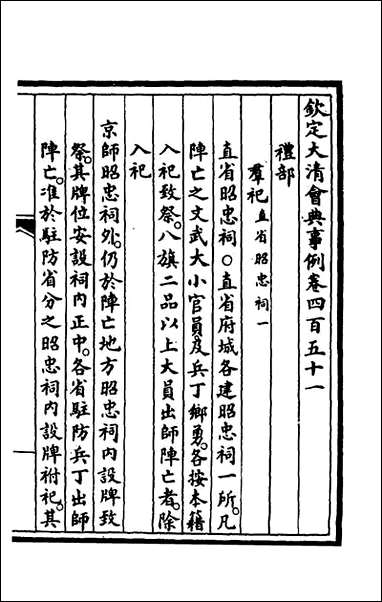 欽定大清會典事例卷四百五十一
禮部
羣祀直省昭忠祠一
直省昭忠祠○直省府城各建昭忠祠一所。凡
陣亡之文武大小官員及兵丁鄉勇。各按本籍
入祀致祭。八旗二品以上大員出師陣亡者。除
入祀
京師昭忠祠外。仍於陣亡地方昭忠祠內設牌致
祭。其牌位安設祠內正中。各省駐防兵丁出師
陣亡。准於駐防省分之昭忠祠內設牌祔祀。其